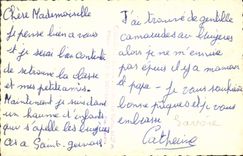 Chère Mademoiselle
je pense bien a vous
et je serai bien contente
de retrouve la classe
et mes petite amis.
Maintenant je suis dans
un home d'enfants
qui s'apelle les bruyères
as a Saint-gervais.
J'ai trouvé de gentille
camarades au bruyeres
alors je ne m'ennuie
pas épuis il y a maman
et papa. Je vous souhaite
bonne paques et je vous
embrasse
Catherine
Savoie